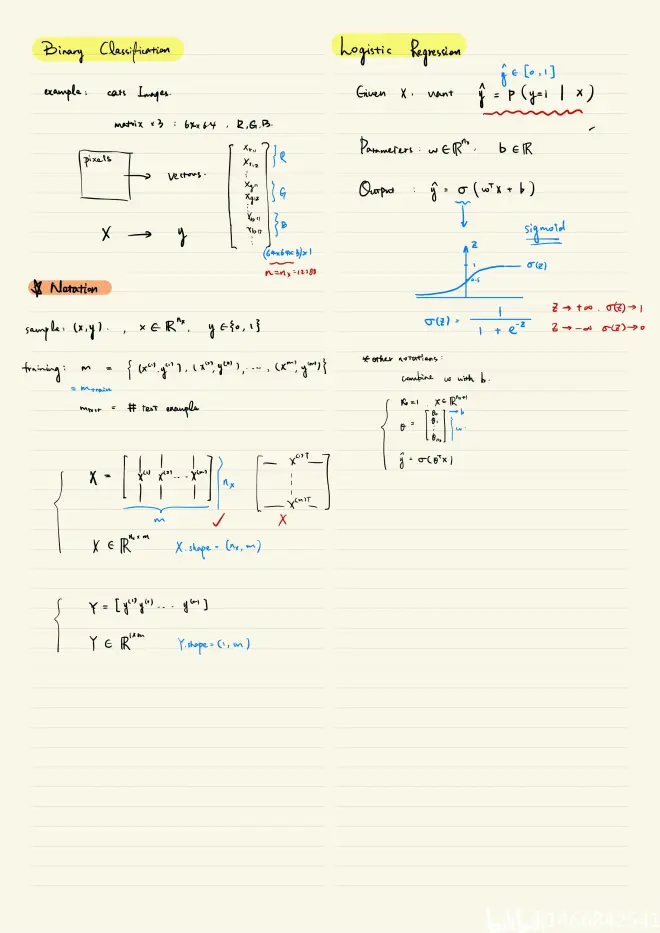 Binary Classification
example: cats Images.
matrix ×3 : 64×64 , R,G,B.
pixels → vectors.
R
G
B
X → y
(64×64×3)×1
n=nₓ=12288
☆ Notation
sample: (x,y) , x∈ℝⁿˣ, y∈{0,1}
training: m = {(x⁽¹⁾,y⁽¹⁾), (x⁽²⁾,y⁽²⁾), ..., (x⁽ᵐ⁾,y⁽ᵐ⁾)}
= m train
m test = # test example
X = [x⁽¹⁾ x⁽²⁾ ... x⁽ᵐ⁾] nₓ
m ✓
x⁽¹⁾ᵀ
x⁽ᵐ⁾ᵀ
X
X ∈ ℝⁿˣ×ᵐ X.shape = (nₓ, m)
Y = [y⁽¹⁾ y⁽²⁾ ... y⁽ᵐ⁾]
Y ∈ ℝ¹×ᵐ Y.shape = (1, m)
Logistic Regression
ŷ ∈ [0,1]
Given X, want ŷ = P(y=1 | x)
Parameters: w∈ℝⁿˣ, b∈ℝ
Output : ŷ = σ(wᵀx + b)
sigmoid
z
1
0.5
σ(z)
σ(z) = 1 / (1 + e⁻ᶻ)
z → +∞, σ(z) → 1
z → -∞ σ(z) → 0
* other notations:
combine w with b.
x₀=1 x∈ℝⁿˣ⁺¹
θ = [θ₀ θ₁ ⋮ θₙₓ] → b
w
ŷ = σ(θᵀx)